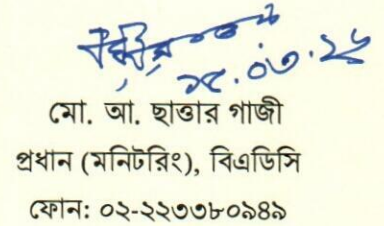 ১৫.০৩.২৬
মো. আ. ছাত্তার গাজী
প্রধান (মনিটরিং), বিএডিসি
ফোন: ০২-২২৩৩৮০৯৪৯